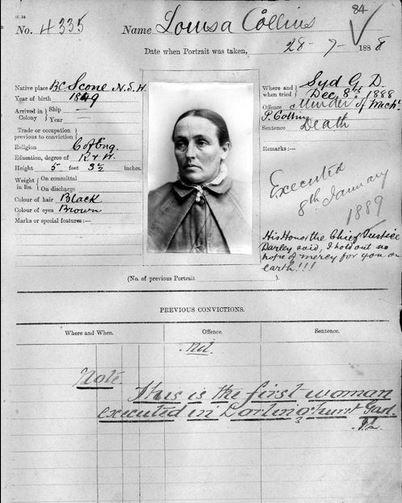 84
No. 4335 Name Louisa Collins
Date when Portrait was taken, 28-7-1888
Native place Nr Scone N.S.W.
Year of birth 1849
Arrived in Colony } Ship
Year
Trade or occupation previous to conviction }
Religion C of Eng.
Education, degree of R & W.
Height 5 feet 3½ inches.
Weight in lbs. } On committal
On discharge
Colour of hair Black
Colour of eyes Brown
Marks or special features:—
Where and when tried } Syd G. D.
Dec. 8th, 1888
Offence Murder of Michl
P. Collins
Sentence Death
Remarks:—
Executed
8th January
1889
His Honor the Chief Justice
Darley said, I hold out no
hope of mercy for you on
earth!!!
(No. of previous Portrait ).
PREVIOUS CONVICTIONS.
Where and When. Offence. Sentence.
Nil.
Note
This is the first woman
executed in Darlinghurst Gaol.